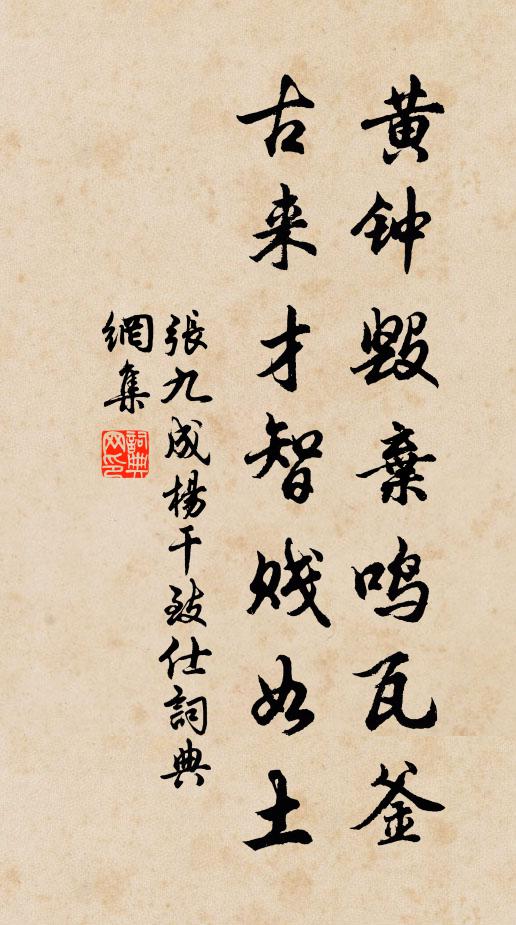 黄钟毁弃鸣瓦釜
古来才智贱如土
張九成楊干致仕詞典
網集
詞典
网印